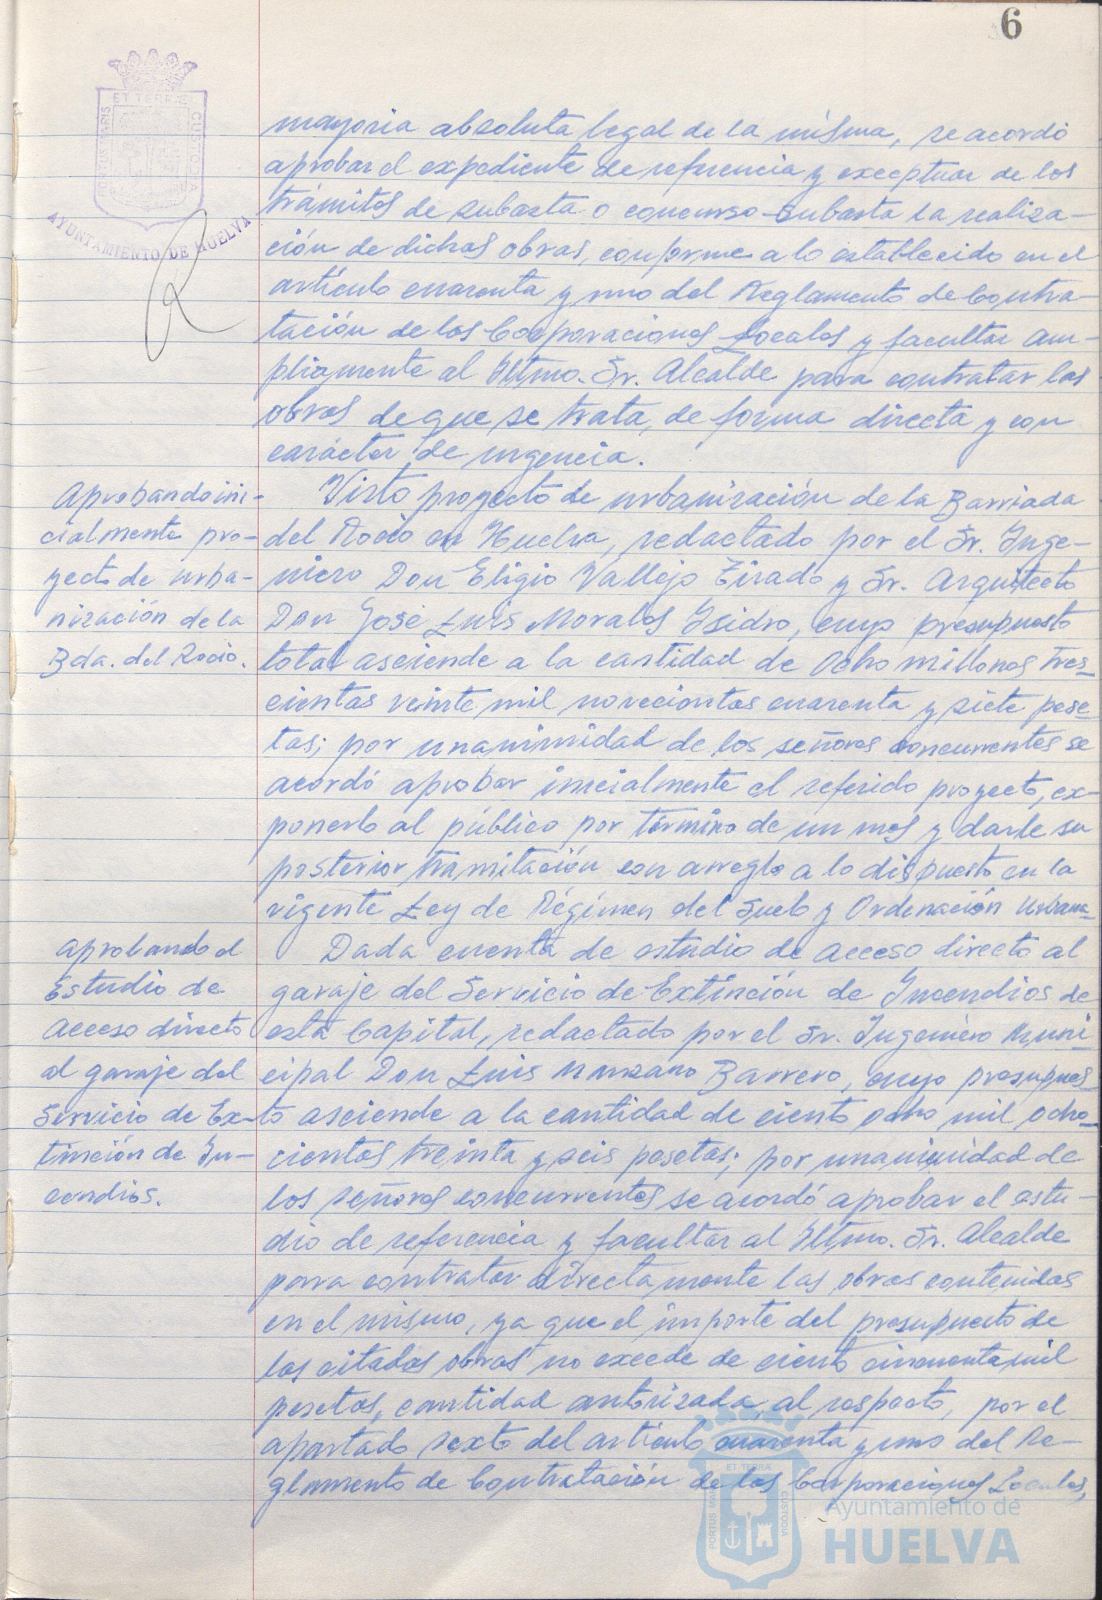 6
ET TERRÆ
PORTUS MARIS
CUSTODIA
AYUNTAMIENTO DE HUELVA
mayoria absoluta legal de la misma, se acordó
aprobar el expediente de referencia y exceptuar de los
trámites de subasta o concurso-subasta la realiza-
ción de dichas obras, conforme a lo establecido en el
artículo cuarenta y uno del Reglamento de Contra-
tación de las Corporaciones Locales y facultar am-
pliamente al Iltmo. Sr. Alcalde para contratar las
obras de que se trata, de forma directa y con
carácter de urgencia.
Aprobando ini-
cialmente pro-
yecto de urba-
nización de la
Bda. del Rocio.
Visto proyecto de urbanización de la Barriada
del Rocio en Huelva, redactado por el Sr. Inge-
niero Don Eligio Vallejo Tirado y Sr. Arquitecto
Don José Luis Morales Isidro, cuyo presupuesto
total asciende a la cantidad de Ocho millones tres-
cientas veinte mil novecientas cuarenta y siete pese-
tas; por unanimidad de los señores concurrentes se
acordó aprobar inicialmente el referido proyecto, ex-
ponerlo al público por término de un mes y darle su
posterior tramitación con arreglo a lo dispuesto en la
vigente Ley de Régimen del Suelo y Ordenación Urbana.
Aprobando el
Estudio de
Acceso directo
al garaje del
Servicio de Ex-
tinción de In-
cendios.
Dada cuenta de estudio de acceso directo al
garaje del Servicio de Extinción de Incendios de
esta Capital, redactado por el Sr. Ingeniero Muni-
cipal Don Luis Manzano Barrero, cuyo presupues-
to asciende a la cantidad de ciento ocho mil ocho-
cientas treinta y seis pesetas; por unanimidad de
los señores concurrentes se acordó aprobar el estu-
dio de referencia y facultar al Iltmo. Sr. Alcalde
para contratar directamente las obras contenidas
en el mismo, ya que el importe del presupuesto de
las citadas obras no excede de ciento cincuenta mil
pesetas, cantidad autorizada, al respecto, por el
apartado sexto del artículo cuarenta y uno del Re-
glamento de Contratación de las Corporaciones Locales,
ET TERRÆ
PORTUS MARIS
CUSTODIA
Ayuntamiento de
HUELVA